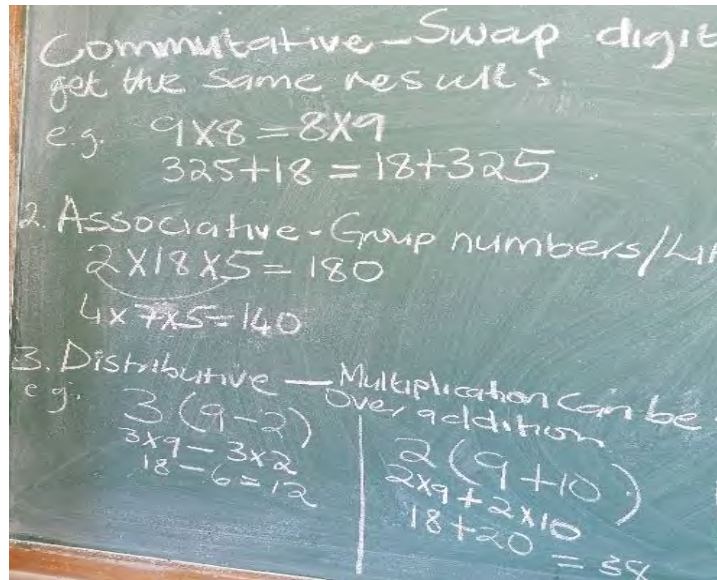 Commutative - Swap digit
get the same results.
e.g. 9x8 = 8x9
325+18 = 18+325.
2. Associative - Group numbers/Lin
2x18x5 = 180
4x7x5=140
3. Distributive — Multiplication can be
over addition
e.g. 3(9-2)
3x9 - 3x2
18 - 6 = 12
2(9+10)
2x9 + 2x10
18+20 = 38